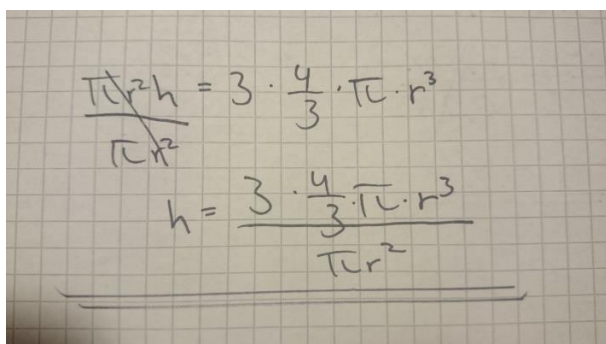 πr²h / πr² = 3 · 4/3 · π · r³
h = 3 · 4/3 · π · r³ / πr²